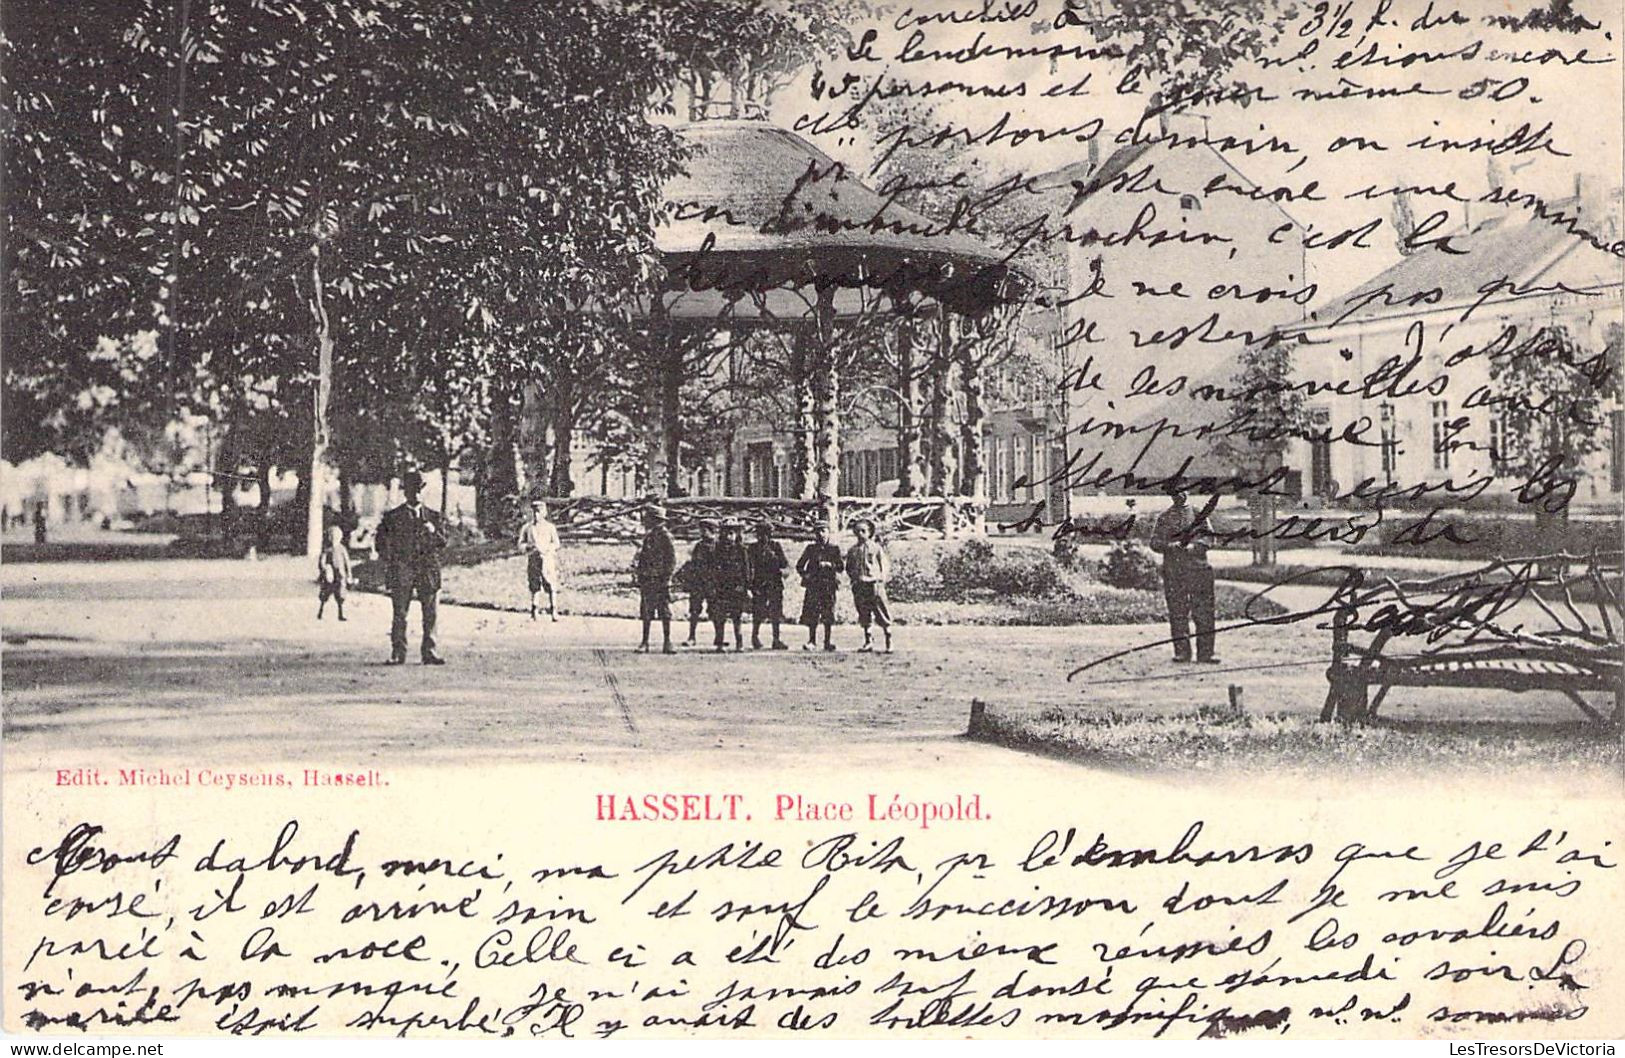 couchés à 3½ h. du matin.
Le lendemain ns. étions encore
45 personnes et le jour même 50.
partons demain, on insiste
pr que je reste encore une semaine
dimanche prochain, c'est là
Je ne crois pas que
je resterai. J'attends
de tes nouvelles avec
impatience. En
attendant reçois les
bons baisers de
Edit. Michel Ceysens, Hasselt.
HASSELT. Place Léopold.
Tout dabord, merci, ma petite Rita, pr l'embarras que je t'ai
causé, il est arrivé sain et sauf le saucisson dont je me suis
parée à la noce. Celle ci a été des mieux réussies, les cavaliers
n'ont pas manqué, je n'ai jamais tant dansé que samedi soir. La
mariée était superbe, Il y avait des toilettes magnifiques, ns. ns. sommes
LesTresorsDeVictoria